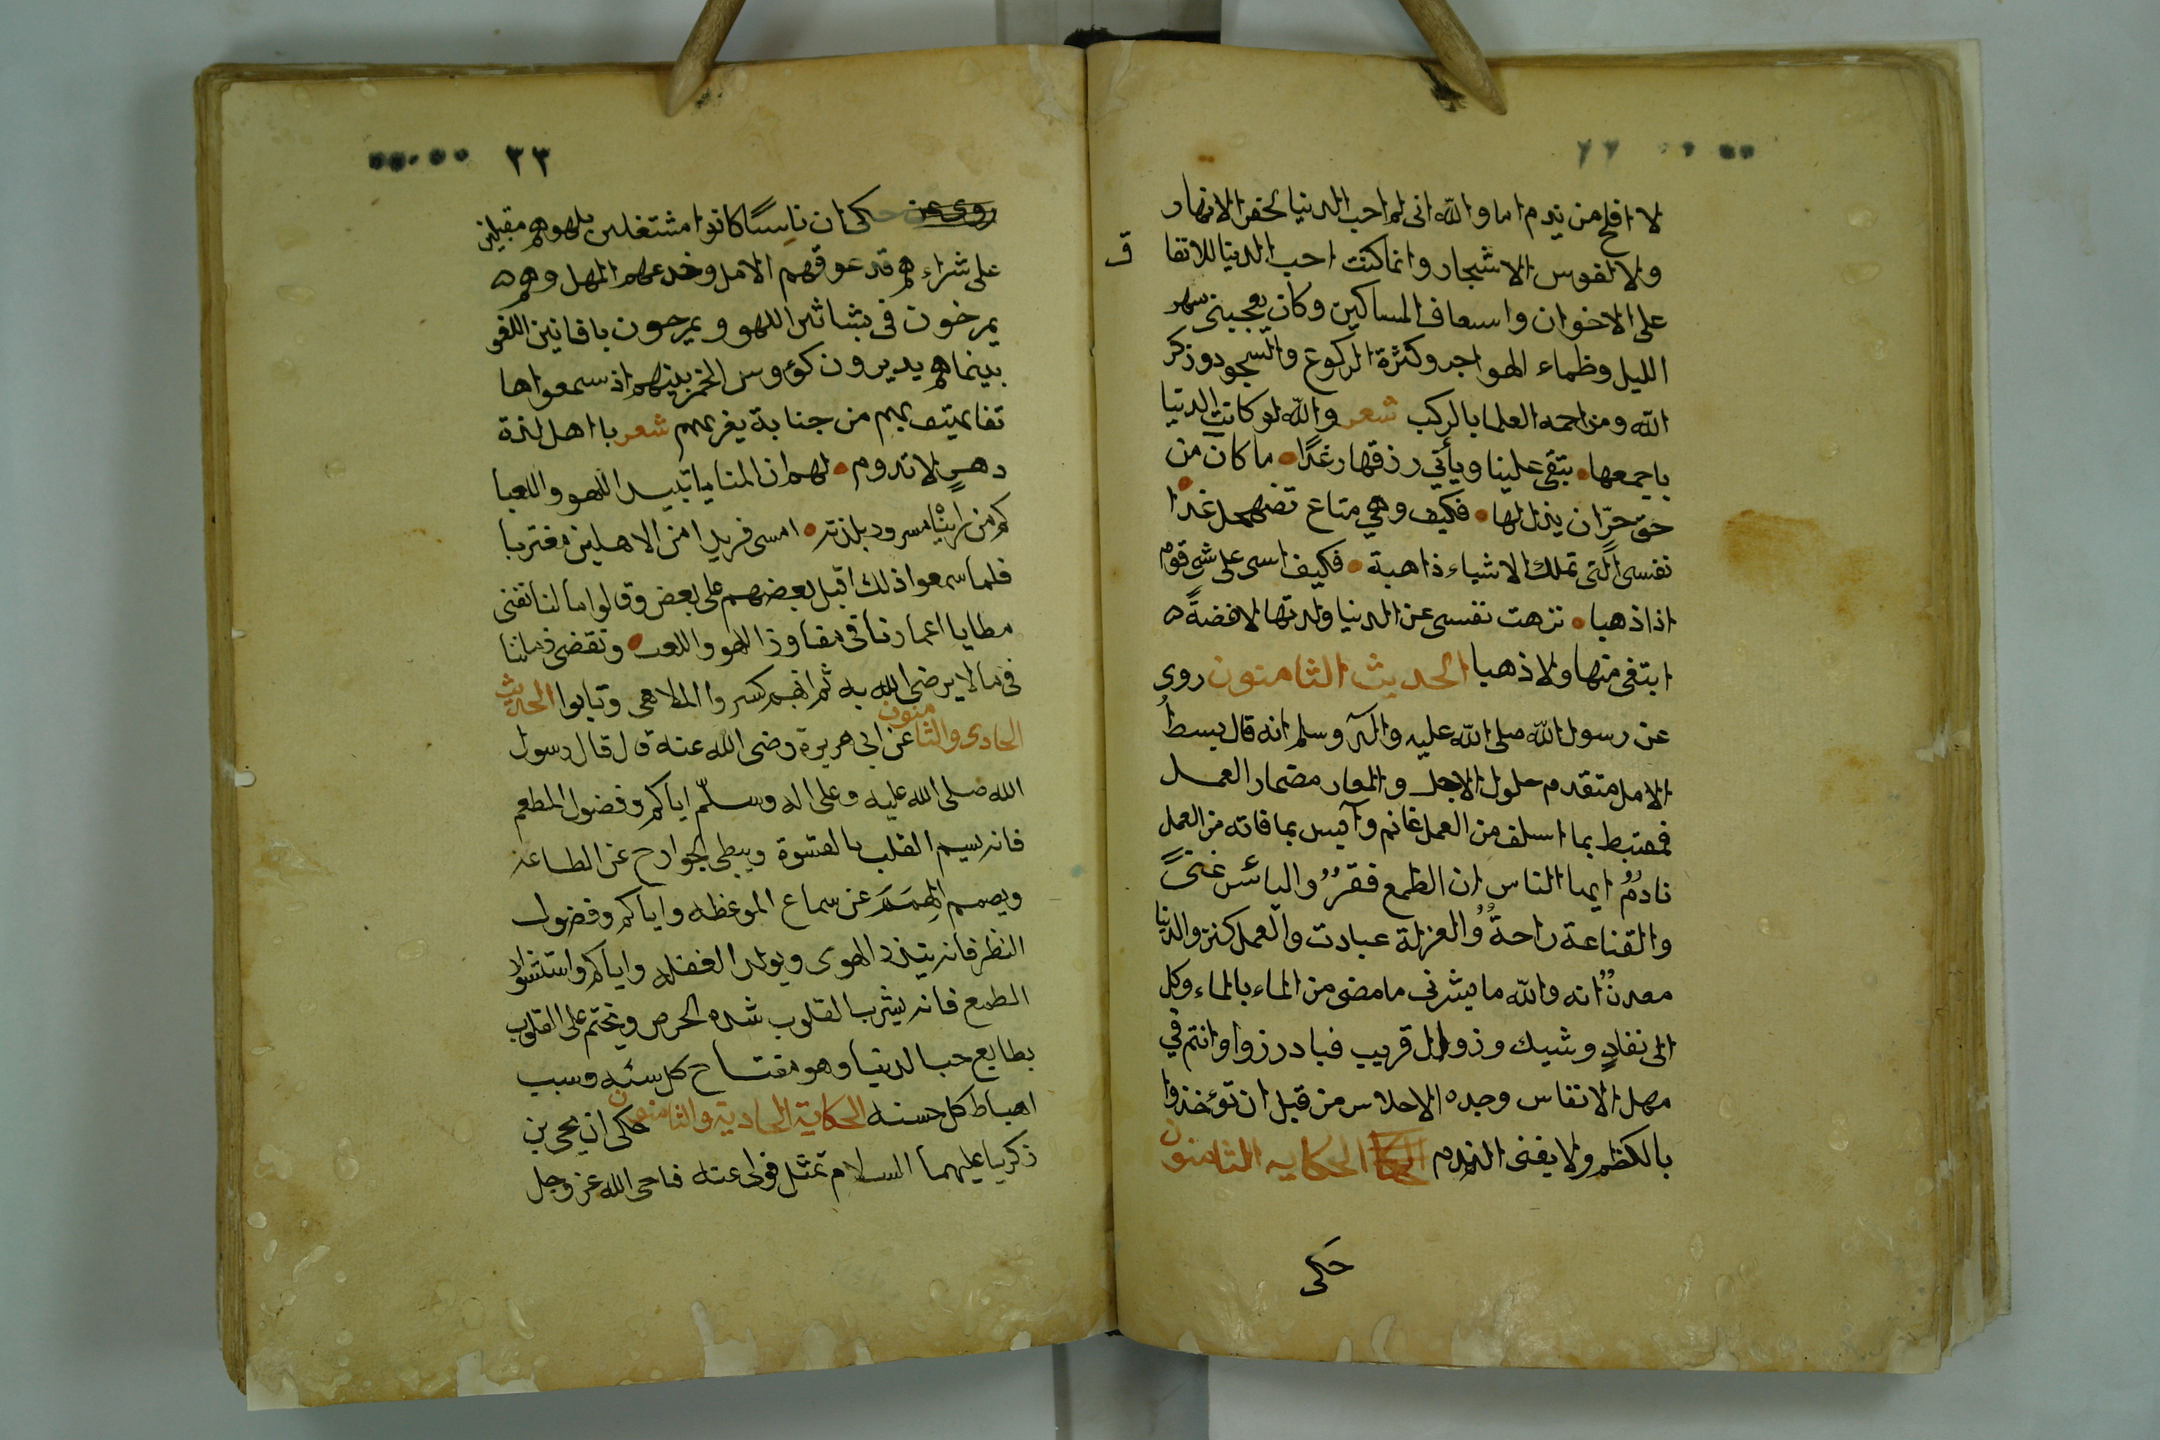 ٢٢
لا افلح من يدم اما والله انى لم احب الدنيا لحفر الانهار
ولا لغوس الاشجار وانما كنت احب الدنيا للانفا
ق
على الاخوان واسعاف المساكين وكان يعجبنى سهر
الليل وظماء الهواجر وكثرة الركوع والسجود وذكر
الله ومزاحمه العلما بالركب شعر والله لو كانت الدنيا
باجمعها تبقى علينا ويأتي رزقها رغدًا ما كان من
حق حرّ ان يذل لها فكيف وهي متاع تضمحل غدا
نفسى الّتى تملك الاشياء ذاهبة فكيف اسى على شئ قوم
اذا ذهبا نزهت نفسى عن الدنيا ولذتها لا فضةً
ابتغى منها ولا ذهبا الحديث الثامنون روى
عن رسول الله صلى الله عليه وآله وسلم انه قال يسط
الامل متقدم حلول الاجل والمعاد مضمار العمل
فمغتبط بما اسلف من العمل غانم وآئيس بما فاته من العمل
نادمٌ ايها الناس ان الطمع فقرٌ والياس غنىً
والقناعة راحةٌ والعزلة عبادت والعمل كنز والدنيا
معدنٌ انه والله ما يشرنى ما مضى من الماء بالماء وكل
الى نفادٍ وشيك وزوال قريب فبادرزوا وانتم في
مهل الانفاس وجده الاحلاس من قبل ان تؤخذوا
بالكظم ولا يغنى الندم الحكايه الثامنون
حكى
٣٣
روى عن حكى ان ناسًا كانوا مشتغلين بلهوهم مقبلين
على شراءهم قد عوقهم الامل وخدعهم المهل وهم
يمرخون في بشاشر اللهو ويمرحون بافانين اللغو
بينماهم يديرون كؤوس الخمر بينهم اذ سمعوا ها
تفا يهتف بهم من جنابة يغريهم شعر يا اهل لذة
دهرٍ لا تدوم لهم ان المنايا تبيد اللهو واللعبا
كم من رايناه مسرود بلذته امسى فريدا من الاهلين مغتربا
فلما سمعوا ذلك اقبل بعضهم على بعض وقالوا ما لنا نفنى
مطايا اعمارنا في مفاوز اللهو واللعب ونقضى زماننا
في ما لا يرضى الله به ثم انهم كسروا الملاهى وتابوا الحديث
الحادى والثامنون عن ابى هريرة رضى الله عنه قال قال رسول
الله صلى الله عليه وعلى اله وسلّم اياكم وفضول المطعم
فانه يسيم القلب بالقسوة ويبطى الجوارح عن الطاعه
ويصمم الهمم عن سماع الموعظه واياكم وفضول
النظر فانه يبذر الهوى ويولد الغفله واياكم واستشعار
الطمع فانه يشرب القلوب شده الحرص ويختم على القلوب
بطابع حب الدنيا وهو مفتاح كل سئه وسبب
اهباط كل حسنه الحكاية الحادية والثامنون حكى ان يحيى بن
زكريا عليهما السلام تمثل فولى عنه فاحى الله عز وجل